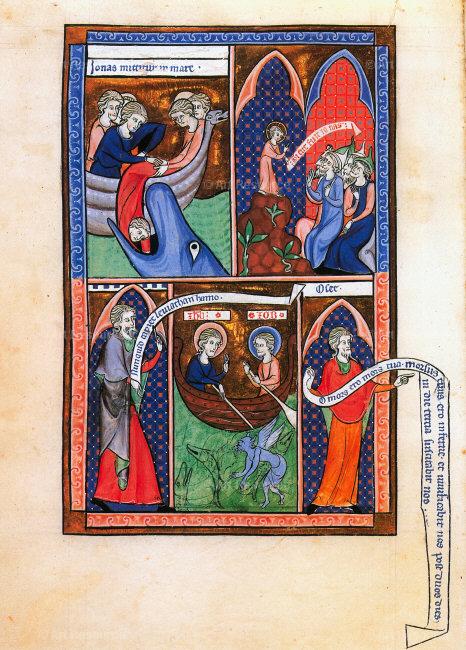 Jonas mittitur in mare ·
Nunquid capies leviathan hamo ·
IOB
Osee ·
O mors ero mors tua · morsus
tuus ero inferne · et vivificabit nos post duos dies ·
in die tercia suscitabit nos ·